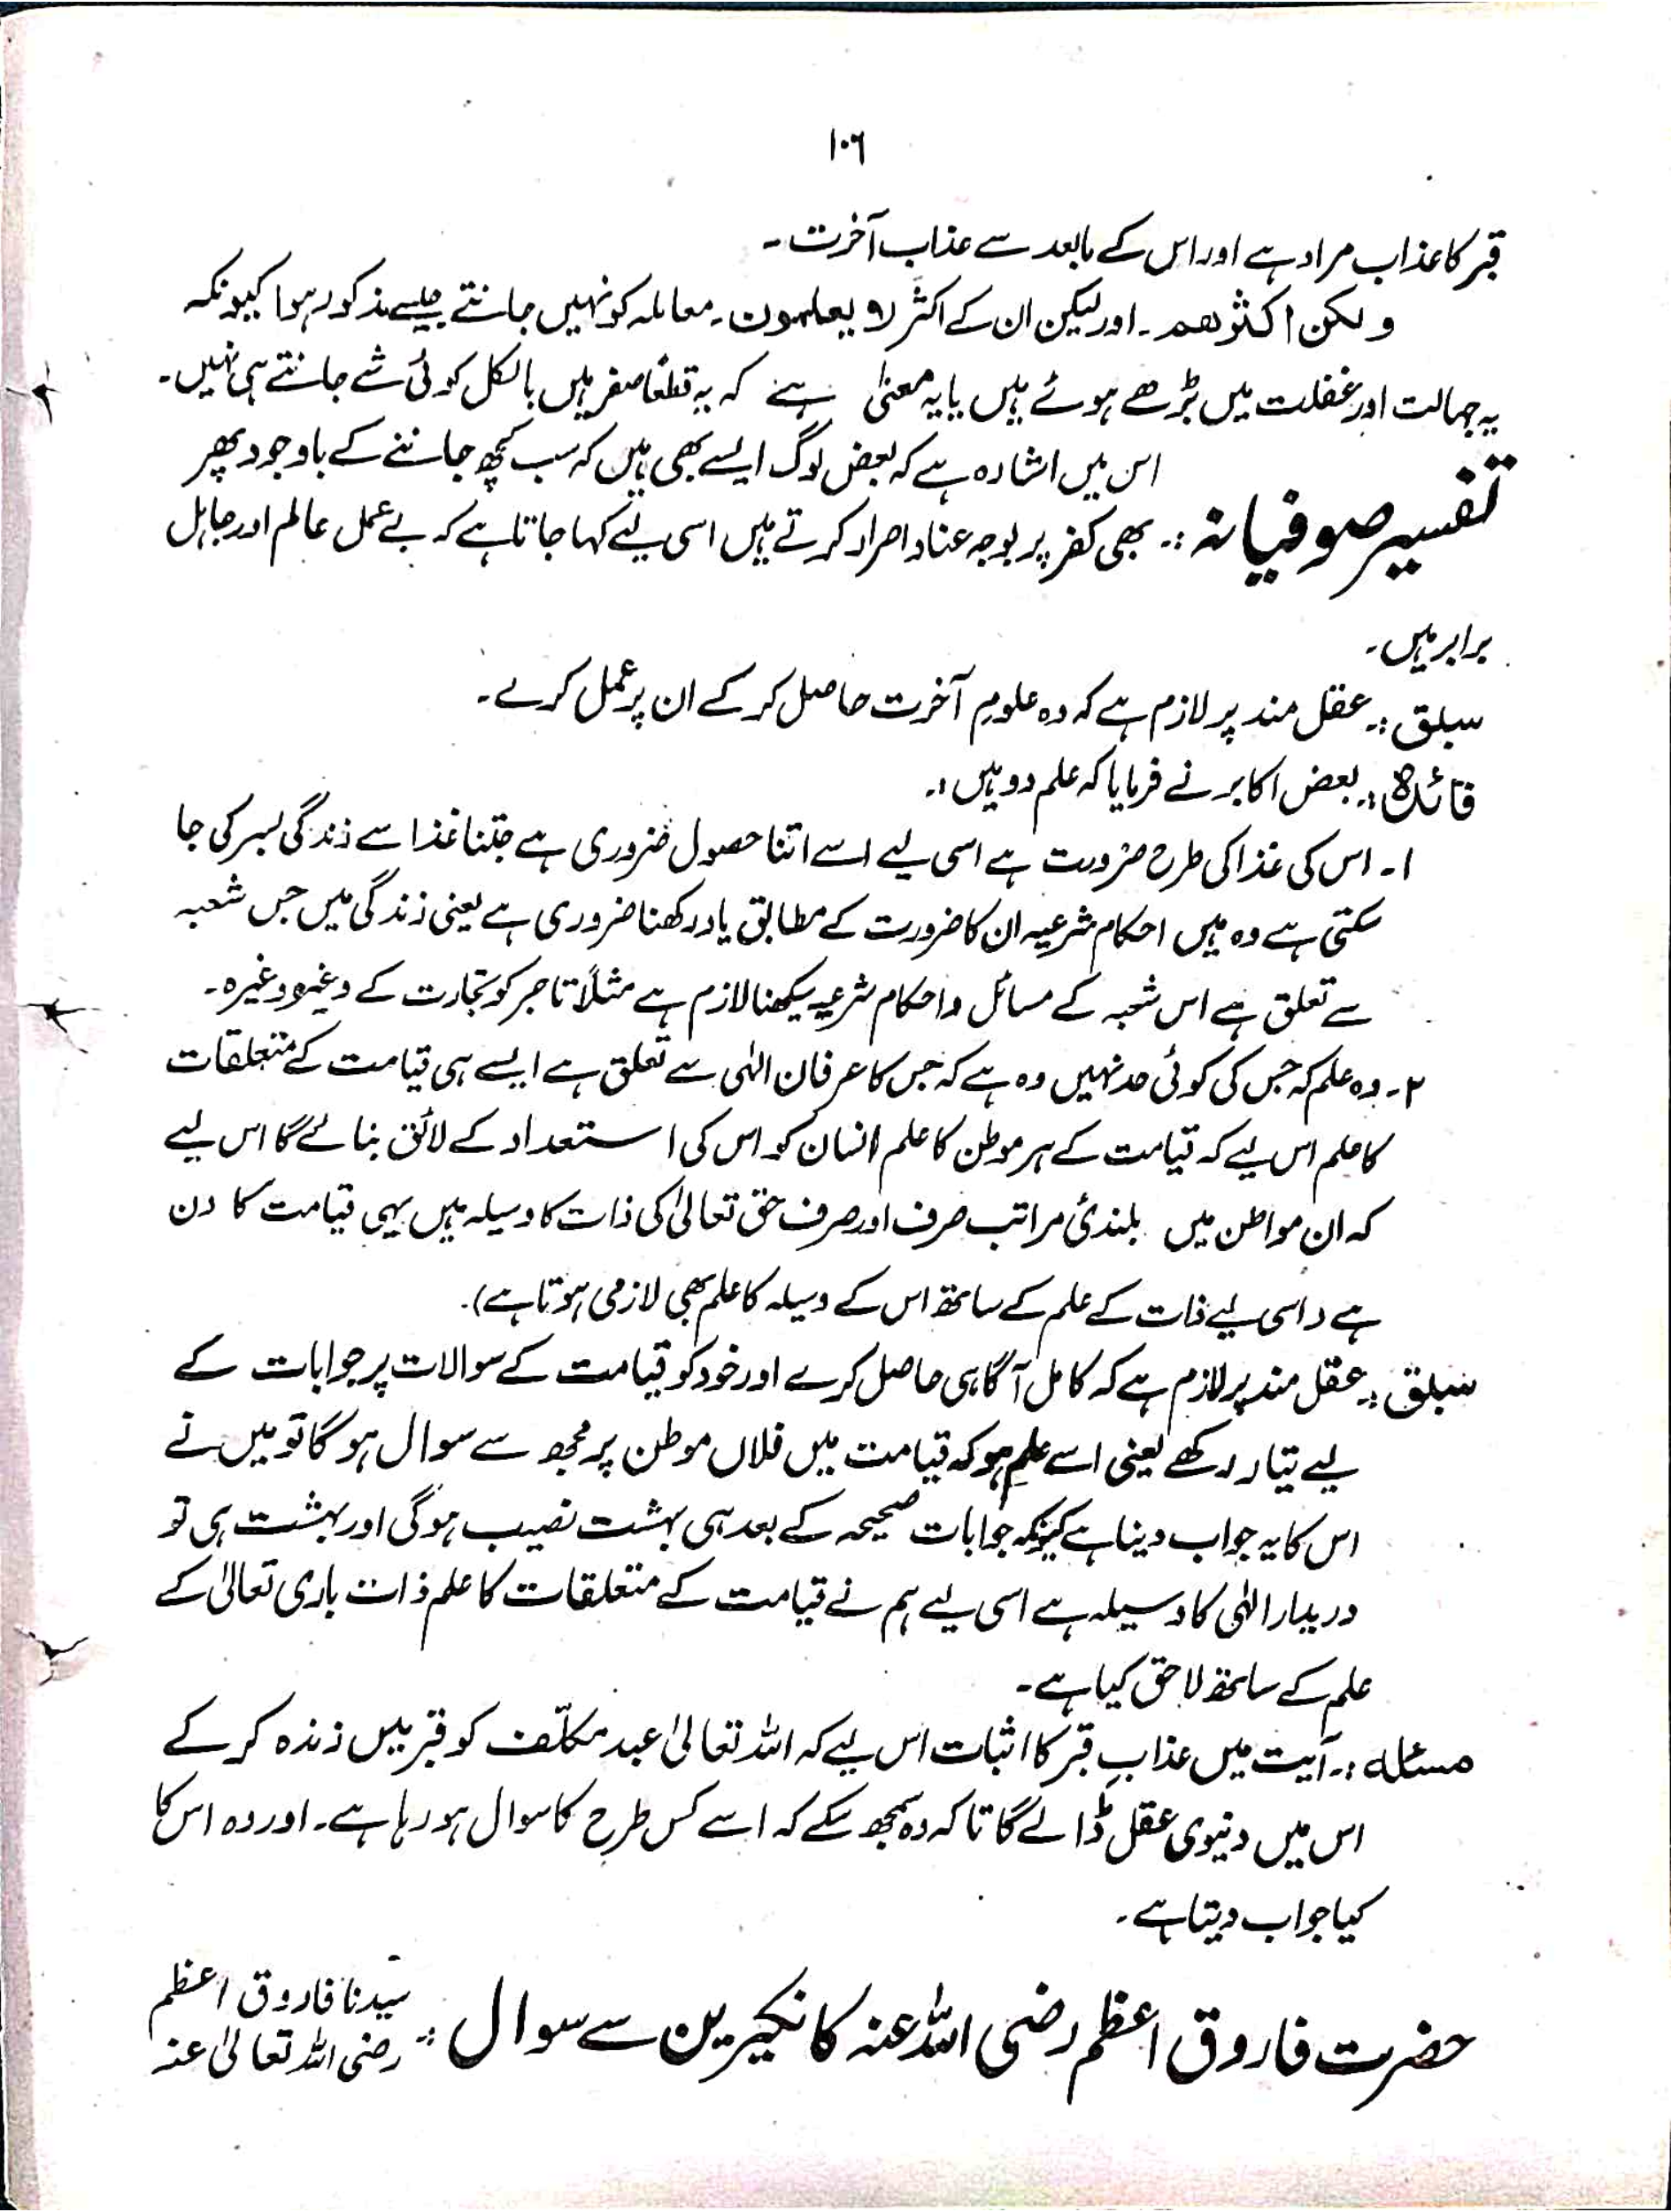 ۱۰۶
قبر کا عذاب مراد ہے اور اس کے مابعد سے عذاب آخرت۔
ولکن اکثرھم۔ اور لیکن ان کے اکثر لا یعلمون۔ معاملہ کو نہیں جانتے جیسے مذکور ہوا کیونکہ
یہ جہالت اور غفلت میں بڑھے ہوئے ہیں یا یہ معنیٰ ہے کہ یہ قطعًا صفر ہیں بالکل کوئی شے جانتے ہی نہیں۔
اس میں اشارہ ہے کہ بعض لوگ ایسے بھی ہیں کہ سب کچھ جاننے کے باوجود پھر
تفسیر صوفیانہ :۔ بھی کفر پر بوجہ عناد اصرار کرتے ہیں اسی لیے کہا جاتا ہے کہ بے عمل عالم اور جاہل
برابر ہیں۔
سبق :۔ عقل مند پر لازم ہے کہ وہ علومِ آخرت حاصل کر کے ان پر عمل کرے۔
فائدہ :۔ بعض اکابر نے فرمایا کہ علم دو ہیں :۔
۱۔ اس کی غذا کی طرح ضرورت ہے اسی لیے اسے اتنا حصول ضروری ہے جتنا غذا سے زندگی بسر کی جا
سکتی ہے وہ ہیں احکام شرعیہ ان کا ضرورت کے مطابق یاد رکھنا ضروری ہے یعنی زندگی میں جس شعبہ
سے تعلق ہے اس شعبہ کے مسائل و احکام شرعیہ سیکھنا لازم ہے مثلاً تاجر کو تجارت کے وغیرہ وغیرہ۔
۲۔ وہ علم کہ جس کی کوئی حد نہیں وہ ہے کہ جس کا عرفان الٰہی سے تعلق ہے ایسے ہی قیامت کے متعلقات
کا علم اس لیے کہ قیامت کے ہر موطن کا علم انسان کو اس کی استعداد کے لائق بنائے گا اس لیے
کہ ان مواطن میں بلندئ مراتب صرف اور صرف حق تعالیٰ کی ذات کا وسیلہ ہیں یہی قیامت کا دن
ہے (اسی لیے ذات کے علم کے ساتھ اس کے وسیلہ کا علم بھی لازمی ہوتا ہے)۔
سبق :۔ عقل مند پر لازم ہے کہ کامل آگاہی حاصل کرے اور خود کو قیامت کے سوالات پر جوابات کے
لیے تیار رکھے یعنی اسے علم ہو کہ قیامت میں فلاں موطن پر مجھ سے سوال ہو گا تو میں نے
اس کا یہ جواب دینا ہے کیونکہ جوابات صحیحہ کے بعد ہی بہشت نصیب ہوگی اور بہشت ہی تو
دیدار الٰہی کا وسیلہ ہے اسی لیے ہم نے قیامت کے متعلقات کا علم ذات باری تعالیٰ کے
علم کے ساتھ لاحق کیا ہے۔
مسئلہ :۔ آیت میں عذابِ قبر کا اثبات اس لیے کہ اللہ تعالیٰ عبد مکلّف کو قبر میں زندہ کر کے
اس میں دنیوی عقل ڈالے گا تاکہ وہ سمجھ سکے کہ اسے کس طرح کا سوال ہو رہا ہے۔ اور وہ اس کا
کیا جواب دیتا ہے۔
حضرت فاروق اعظم رضی اللہ عنہ کا نکیرین سے سوال :۔ سیدنا فاروق اعظم
رضی اللہ تعالیٰ عنہ